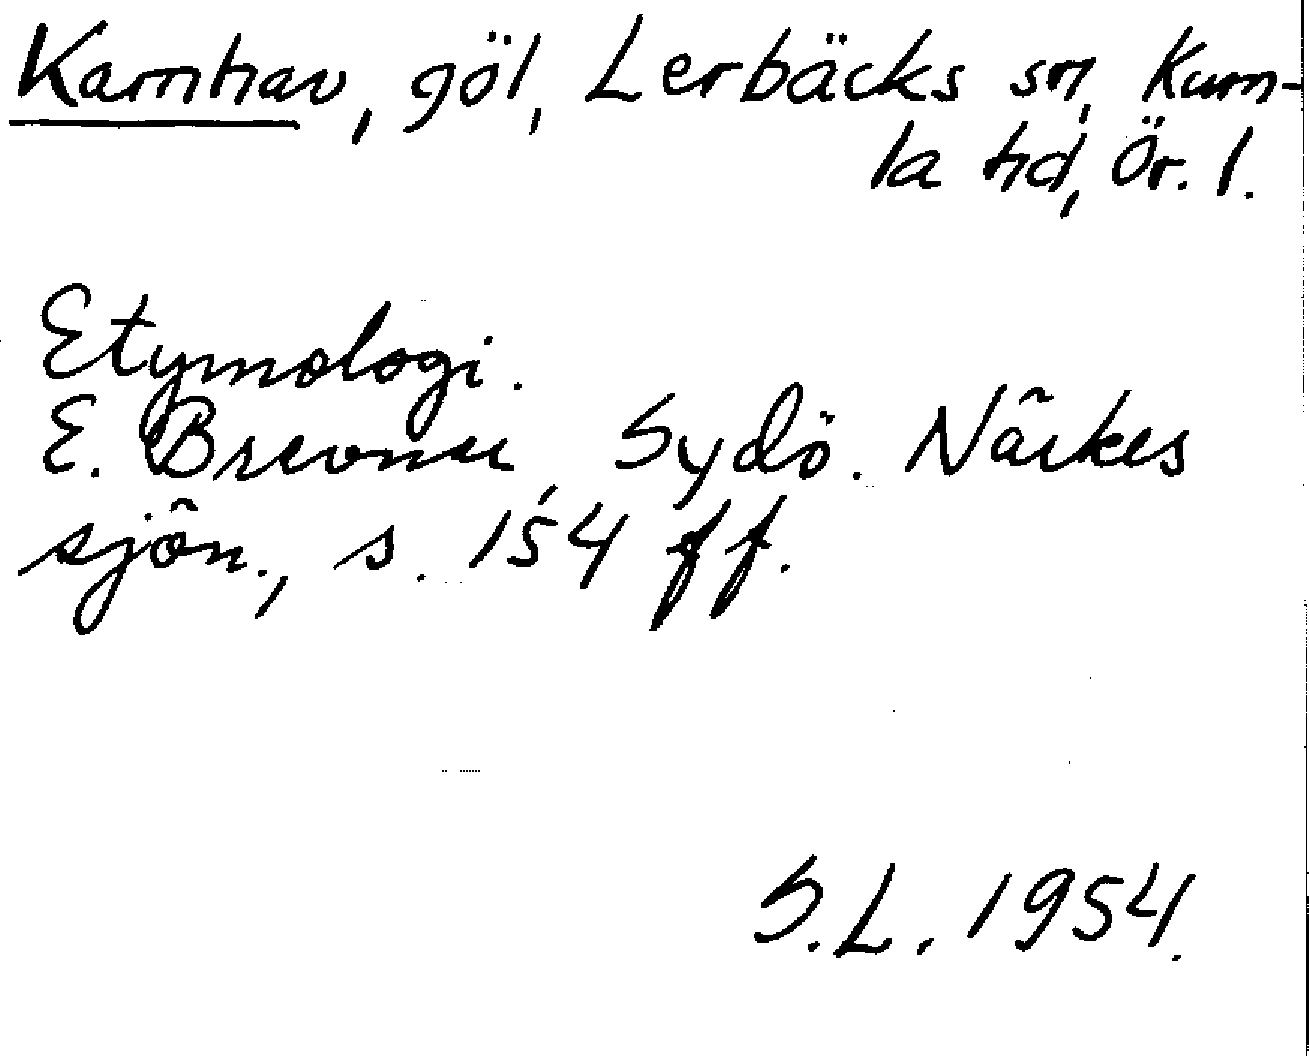 Kamhav, göl, Lerbäcks sn, Kum-
la hd, Ör. l.
Etymologi.
E. Brevner, Sydö. Närkes
sjön., s. 154 ff.
S.L. 1954.